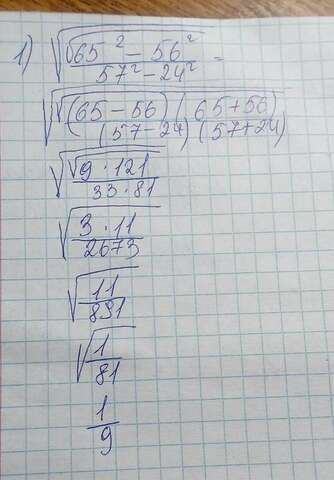 1) √(√(65² − 56²) / (57² − 24²)) =
√(√((65 − 56)(65 + 56)) / ((57 − 24)(57 + 24)))
√(√(9 · 121) / (33 · 81))
√((3 · 11) / 2673)
√(11 / 891)
√(1 / 81)
1 / 9